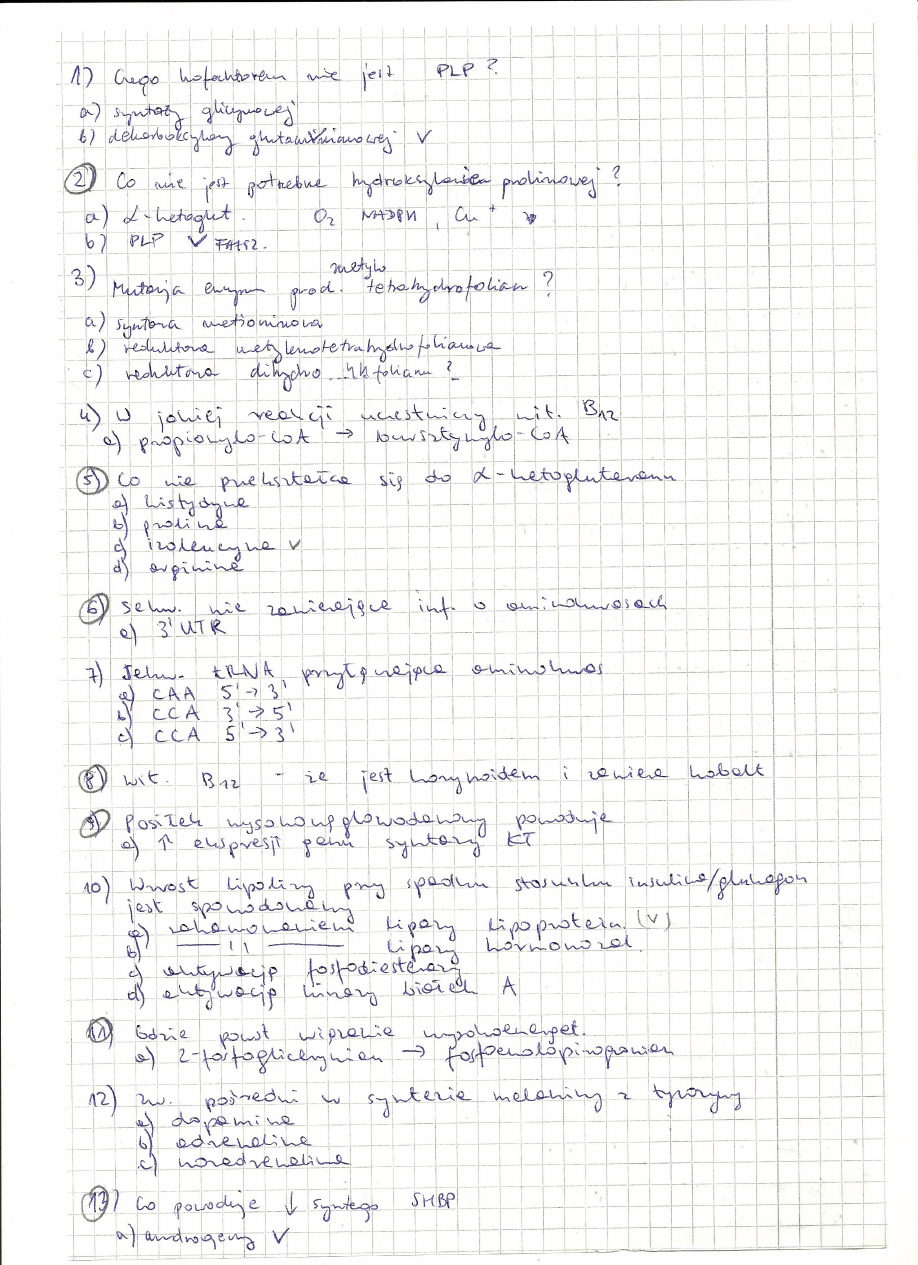 1) Czego kofaktorem nie jest PLP ?
a) syntazy glicynowej
b) dekarboksylazy glutaminianowej ✓
2) Co nie jest potrzebne hydroksylazie prolinowej ?
a) α-ketoglut. O₂ NADPH , Cu⁺
b) PLP ✓ FAŁSZ.
metylo
3) Mutacja enzym prod. tetrahydrofolian ?
a) syntaza metioninowa
b) reduktaza metylenotetrahydrofolianowa
c) reduktaza dihydro...folianu ?
4) W jakiej reakcji uczestniczy wit. B₁₂
a) propionylo-CoA → bursztynylo-CoA
5) Co nie przekształca się do α-ketoglutaranu
a) histydyna
b) prolina
c) izoleucyna ✓
d) arginina
6) Sekw. nie zawierające inf. o aminokwasach
a) 3' UTR
7) Sekw. tRNA przyłączająca aminokwas
a) CAA 5' → 3'
b) CCA 3' → 5'
c) CCA 5' → 3'
8) wit. B₁₂ - że jest korynoidem i zawiera kobalt
9) Posiłek wysokowęglowodanowy powoduje
a) ↑ ekspresji genu syntazy KT
10) Wzrost lipolizy przy spadku stosunku insulina/glukagon
jest spowodowany
a) zahamowaniem lipazy lipoprotein. (✓)
b) —— 11 —— lipazy hormonozal.
c) aktywacją fosfodiesterazy
d) aktywacją kinazy białek A
11) Gdzie powst wiązanie wysokoenerget.
a) 2-fosfoglicerynian → fosfoenolopirogronian
12) zw. pośredni w syntezie melaniny z tyrozyny
a) dopamina
b) adrenalina
c) noradrenalina
13) Co powoduje ↓ syntezę SHBP
a) androgeny ✓